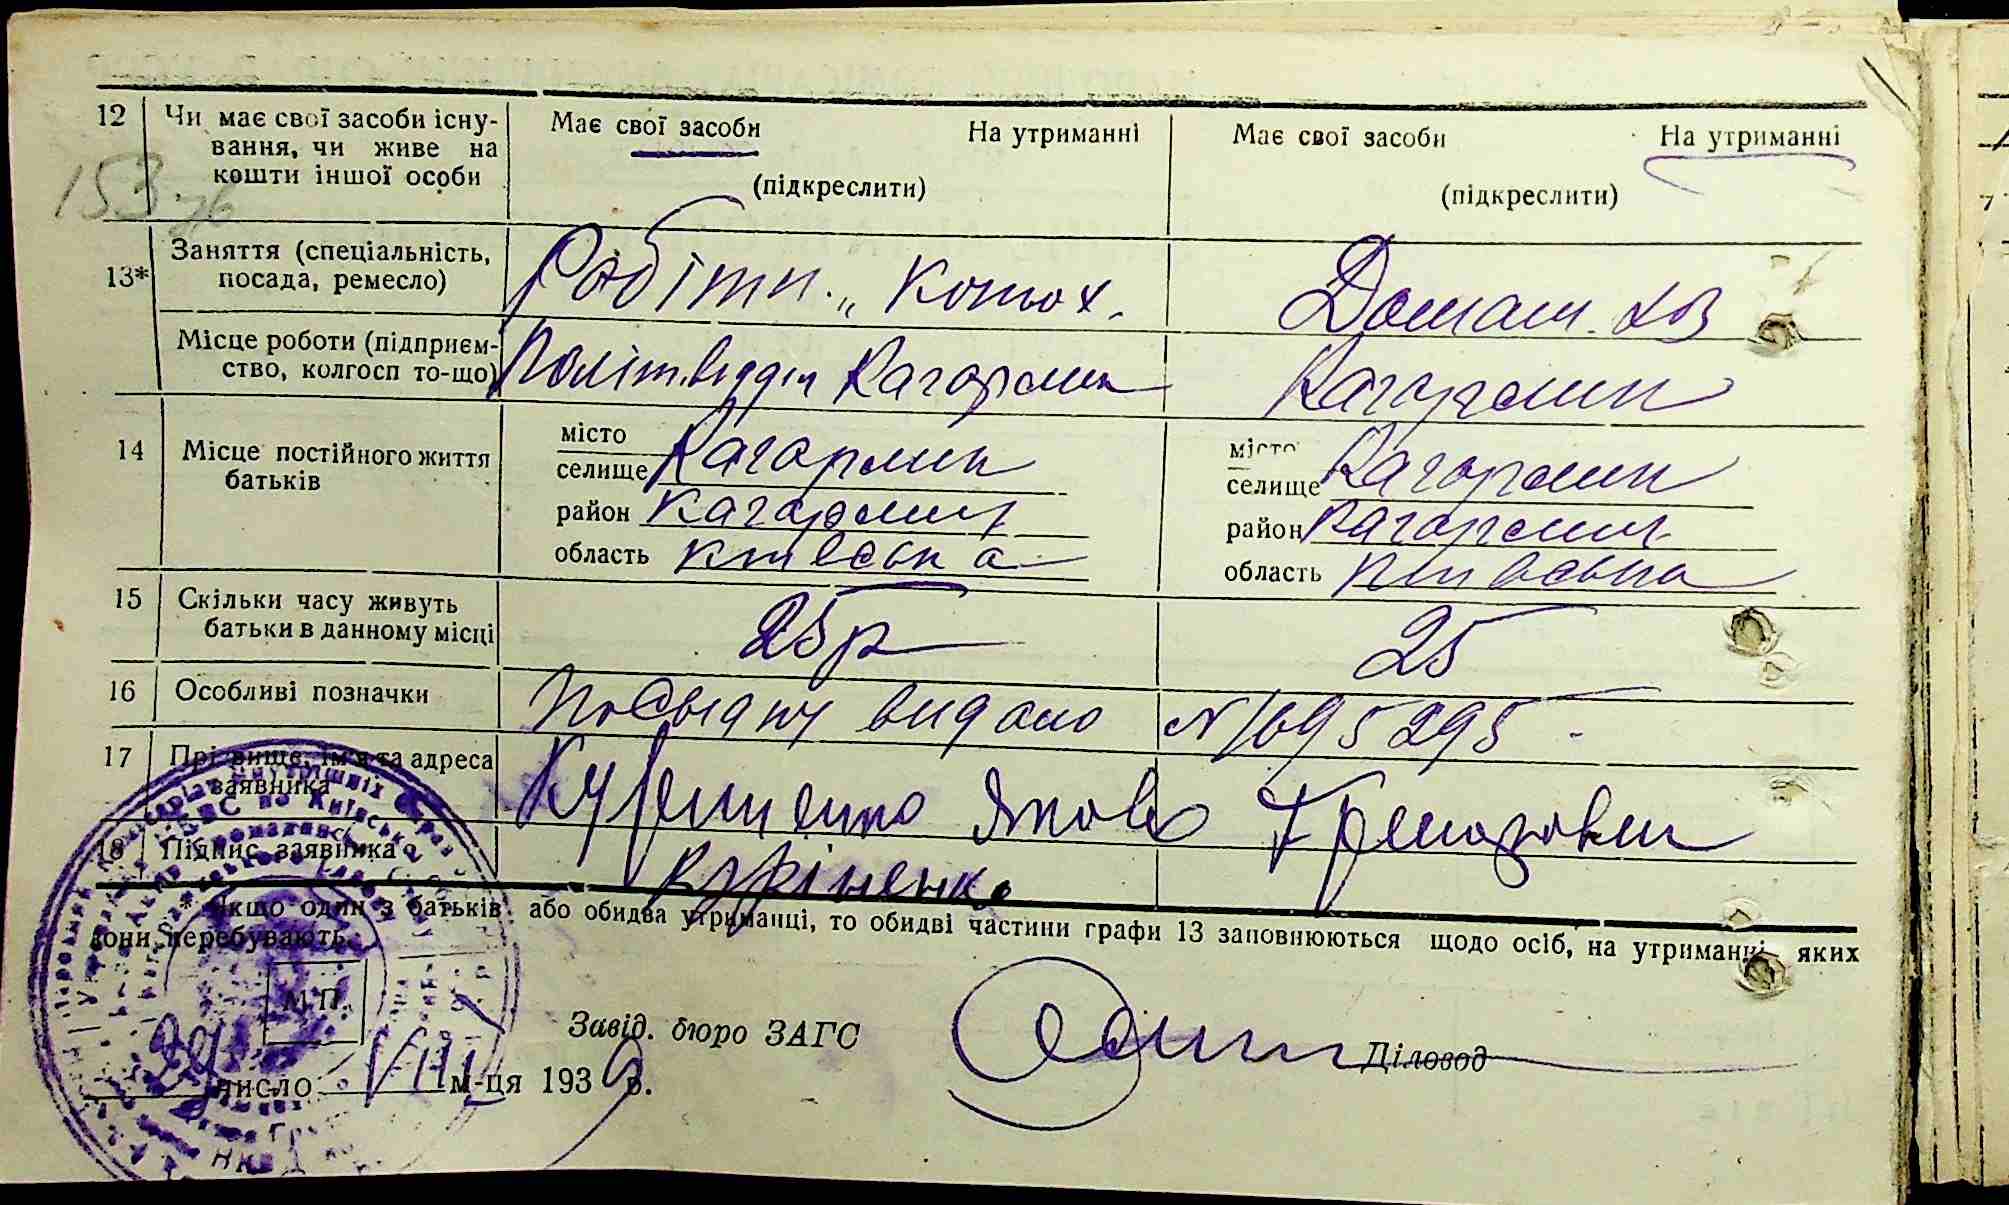 12 Чи має свої засоби існу-
вання, чи живе на
кошти іншої особи
Має свої засоби На утриманні
(підкреслити)
Має свої засоби На утриманні
(підкреслити)
153
13* Заняття (спеціальність,
посада, ремесло)
Робітн. „ Конюх.
Домаш. хоз
Місце роботи (підприєм-
ство, колгосп то-що)
Політвідділ Кагарлик
Кагарлик
14 Місце постійного життя
батьків
місто
селище Кагарлик
район Кагарлик
область Київська
місто
селище Кагарлик
район Кагарлик
область Київська
15 Скільки часу живуть
батьки в данному місці
25р
25
16 Особливі позначки
посвідку видано N 695295
17 Прізвище, ім'я та адреса
заявника
Куриненко Яков
18 Підпис заявника
Куріненко
* Якщо один з батьків, або обидва утриманці, то обидві частини графи 13 заповнюються щодо осіб, на утриманні яких
вони перебувають.
М.П.
Завід. бюро ЗАГС
Діловод
29 число VIII м-ця 1939 р.